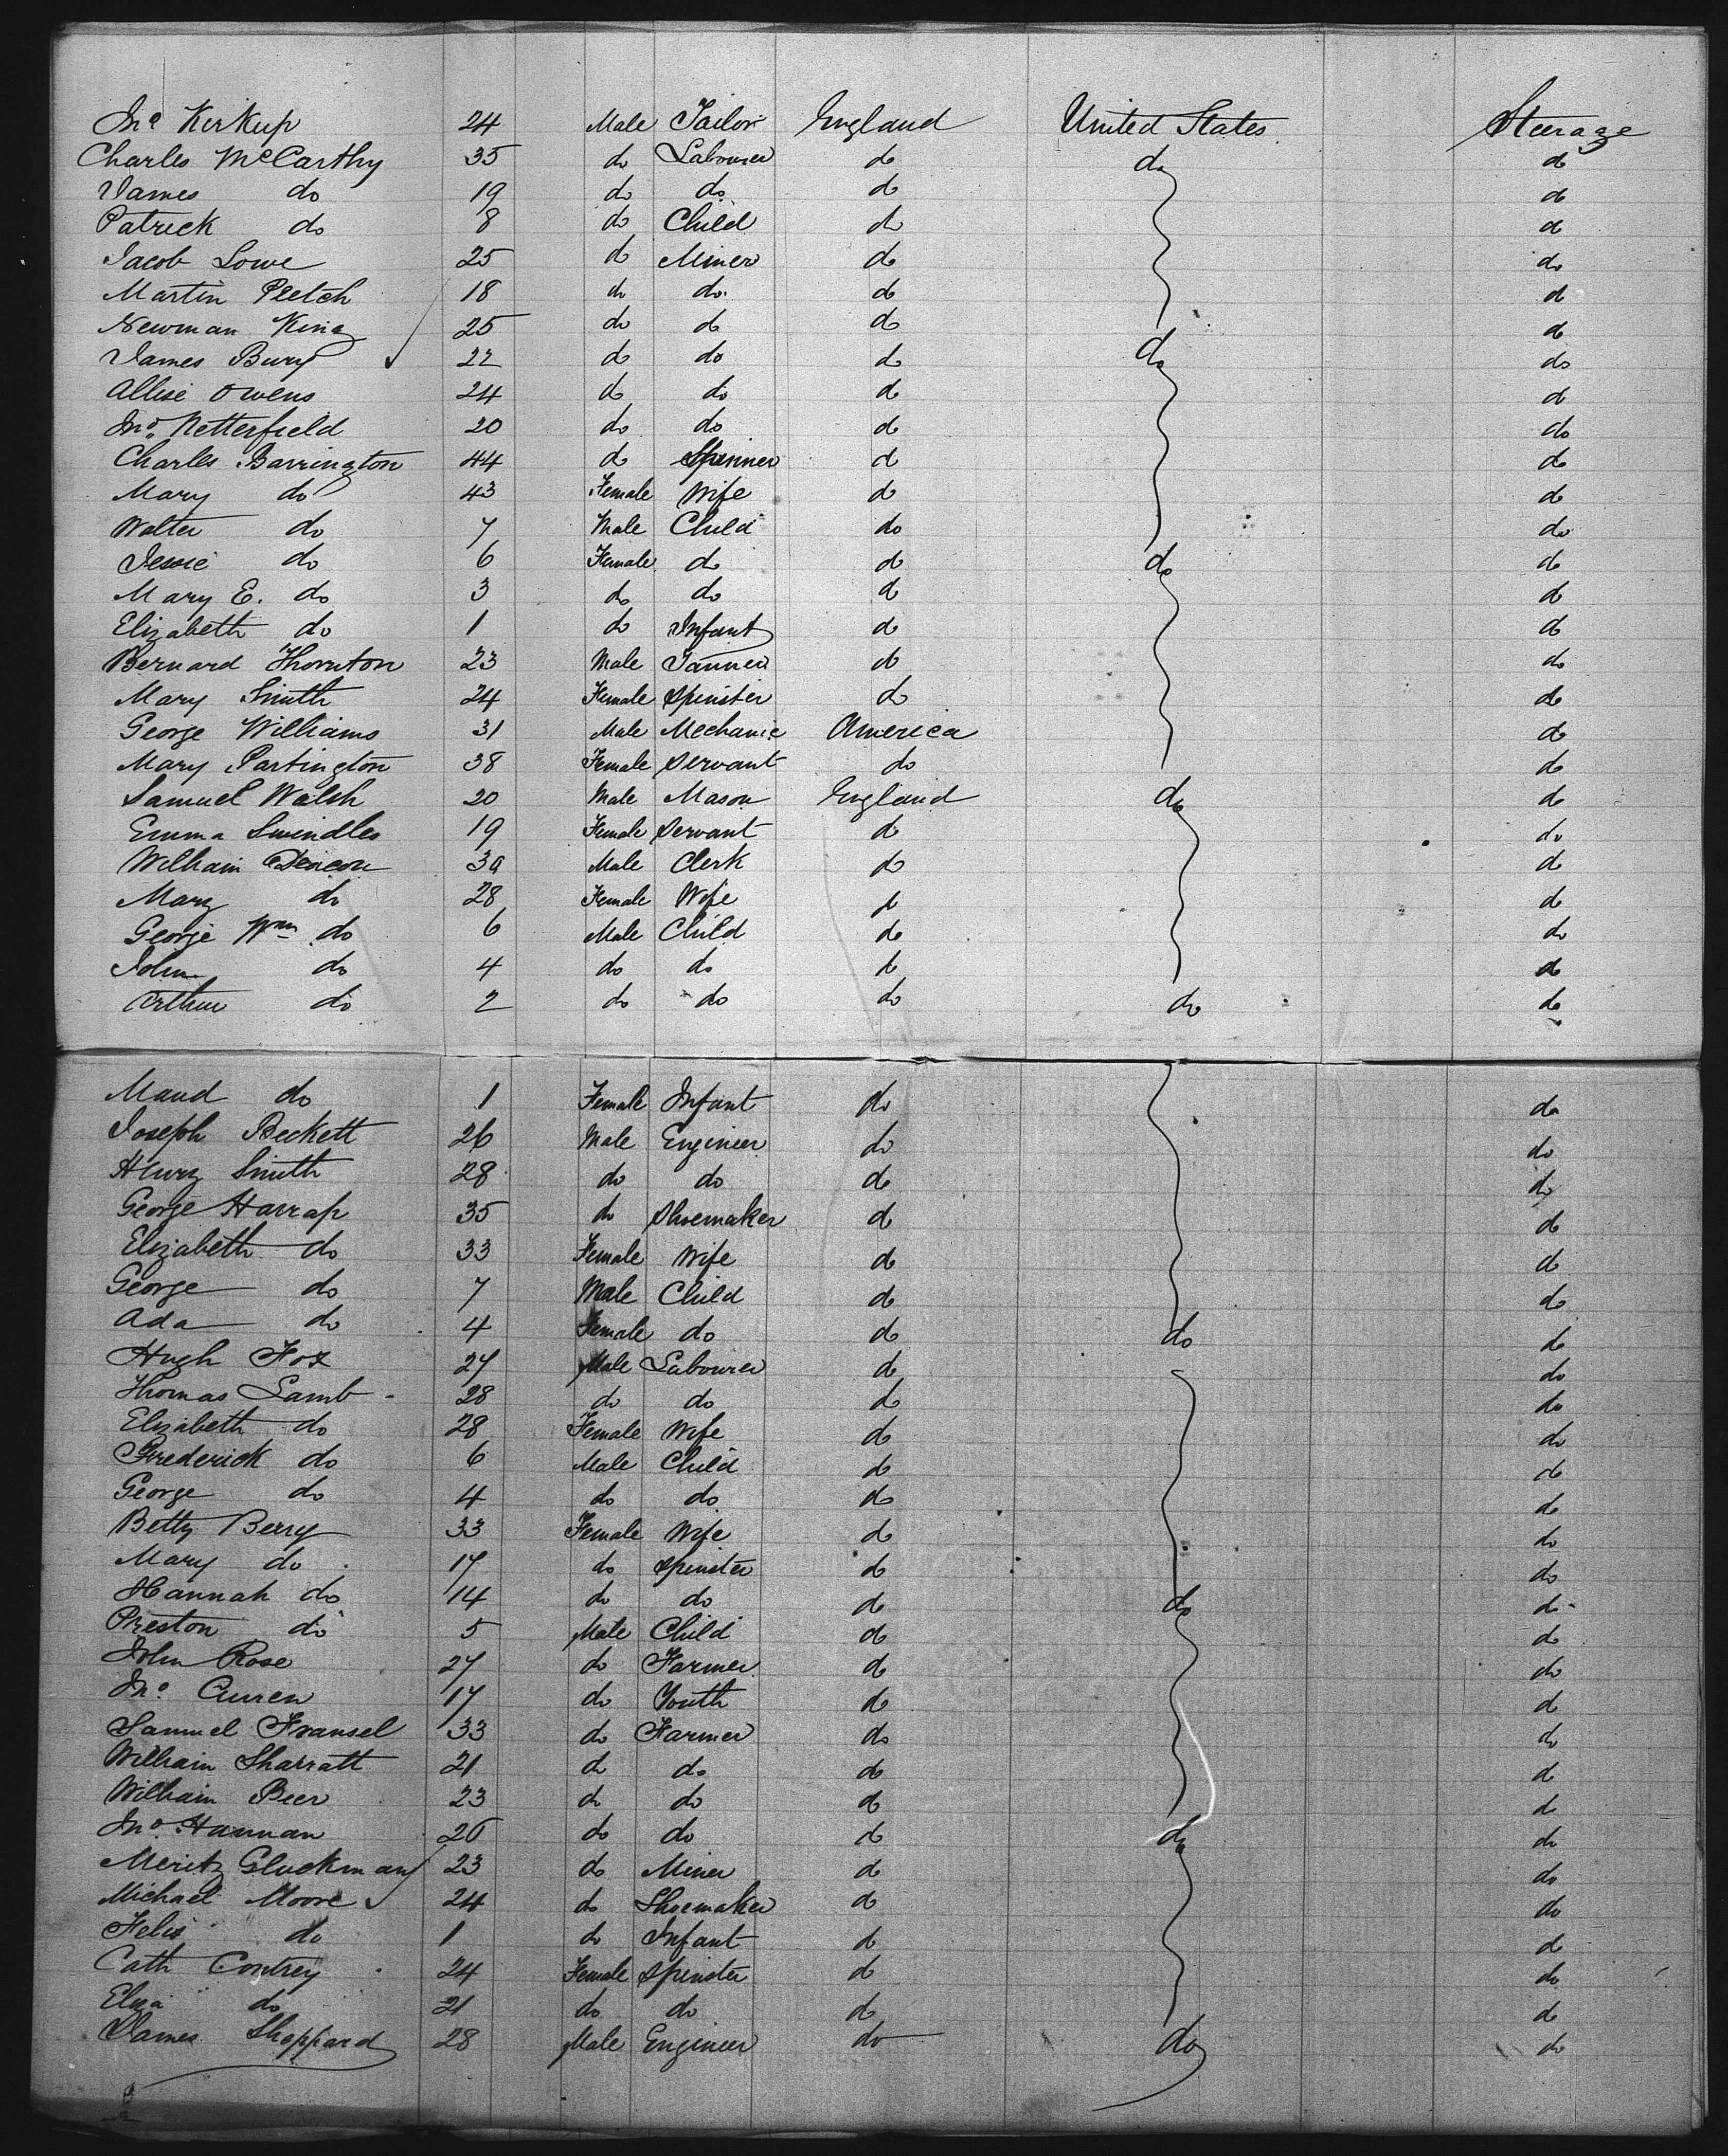 Jno Kirkup 24 Male Tailor England United States Steerage
Charles McCarthy 35 do Labourer do do do
James do 19 do do do do
Patrick do 8 do Child do do
Jacob Lowe 25 do Miner do do
Martin Pletch 18 do do do do
Newman King 25 do do do do
James Bury 22 do do do do do
Allise Owens 24 do do do do
Jno. Netterfield 20 do do do do
Charles Barrington 44 do Spinner do do
Mary do 43 Female Wife do do
Walter do 7 Male Child do do
Jessie do 6 Female do do do do
Mary E. do 3 do do do do
Elizabeth do 1 do Infant do do
Bernard Thornton 23 Male Tanner do do
Mary Smith 24 Female Spinster do do
George Williams 31 Male Mechanic America do
Mary Partington 38 Female Servant do do
Samuel Walsh 20 Male Mason England do do
Emma Swindles 19 Female Servant do do
William Deacon 30 Male Clerk do do
Mary do 28 Female Wife do do
George Wm do 6 Male Child do do
John do 4 do do do do
Arthur do 2 do do do do do
Maud do 1 Female Infant do do
Joseph Beckett 26 Male Engineer do do
Henry Smith 28 do do do do
George Harrap 35 do Shoemaker do do
Elizabeth do 33 Female Wife do do
George do 7 Male Child do do
Ada do 4 Female do do do do
Hugh Fox 27 Male Labourer do do
Thomas Lamb 28 do do do do
Elizabeth do 28 Female Wife do do
Frederick do 6 Male Child do do
George do 4 do do do do
Betty Berry 33 Female Wife do do
Mary do 17 do Spinster do do
Hannah do 14 do do do do do
Preston do 5 Male Child do do
John Rose 27 do Farmer do do
Jno. Curren 17 do Youth do do
Samuel Fransel 33 do Farmer do do
William Sharratt 21 do do do do
William Beer 23 do do do do
Jno. Hannan 20 do do do do do
Meritz Gluckman 23 do Miner do do
Michael Moore 24 do Shoemaker do do
Felix do 1 do Infant do do
Cath Contrey 24 Female Spinster do do
Eliza do 21 do do do do
James Sheppard 28 Male Engineer do do do